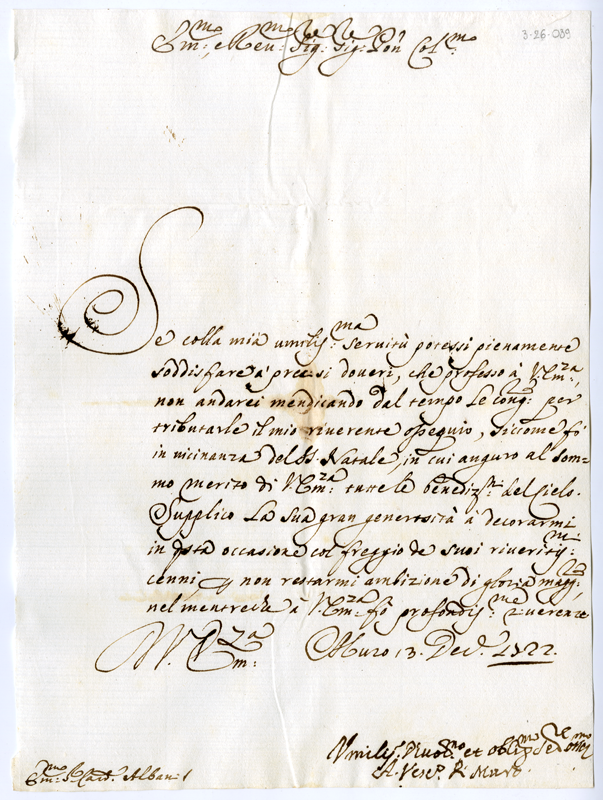 3-26-039
Em:mo e Reu:mo Sig:re Sig:re Pōn Col:mo
Se colla mia umilis:ma seruitù potessi pienamente
soddisfare a' precisi doueri, che professo à V. Em:za,
non andarei mendicando dal tempo le cong:re per
tributarle il mio riuerente ossequio, siccome fò
in uicinanza del SS. Natale, in cui auguro al som=
mo merito di V. Em:za tutte le benediz:ni del Cielo.
Supplico la sua gran generosità à decorarmi
in qsta occasione col freggio de suoi riueritis:mi
cenni, p non restarmi ambizione di gloria magg:re,
nel mentre che à V. Em:za fò profondis:me riuerenze
V. Em:za Muro 13. Dec. 1722.
Umilis:mo Diuot:mo et oblig:mo Se:re osseq:mo
A. Vesc.o di Muro
Em:mo S. Card. Albani